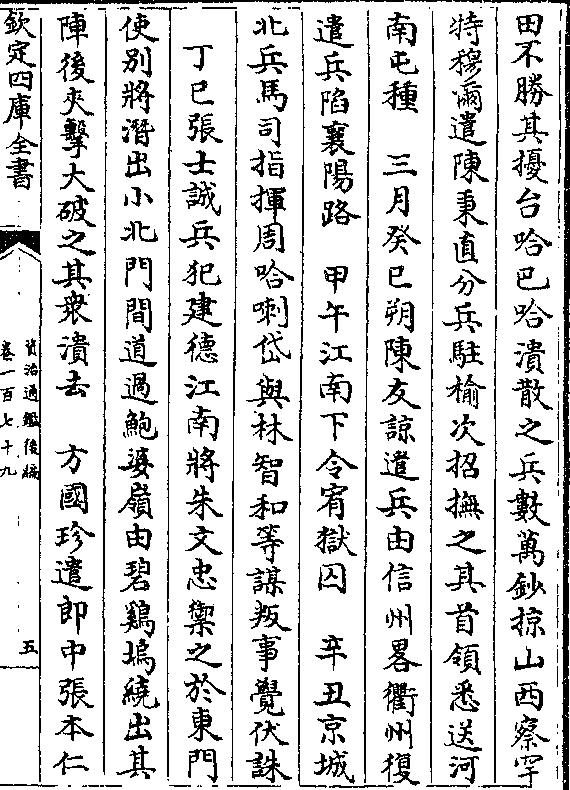 田不勝其擾台哈巴哈潰散之兵數萬鈔掠山西察罕
特穆爾遣陳秉直分兵駐榆次招撫之其首領悉送河
南屯種　三月癸巳朔陳友諒遣兵由信州畧衢州復
遣兵陷襄陽路　甲午江南下令宥獄囚　辛丑京城
北兵馬司指揮周哈喇岱與林智和等謀叛事覺伏誅
丁巳張士誠兵犯建德江南將朱文忠禦之於東門
使別將潛出小北門間道過鮑婆嶺由碧鷄塢繞出其
陣後夾擊大破之其衆潰去　方國珍遣郎中張本仁
欽定四庫全書
資治通鑑後編
卷一百七十九
五